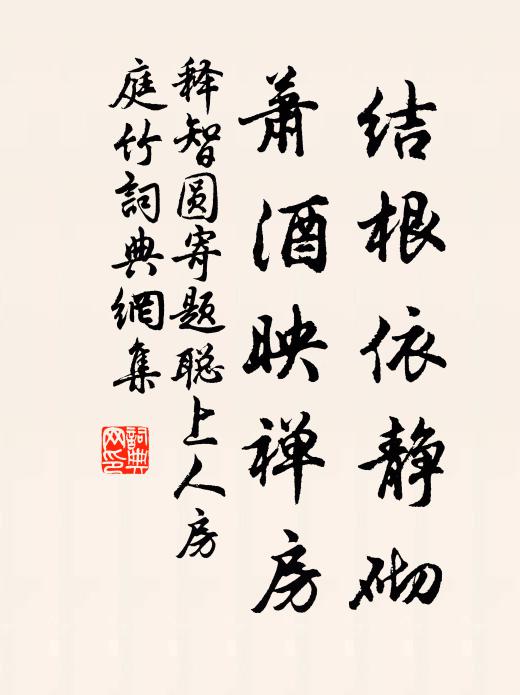 结根依静砌
萧洒映禅房
释智圆寄题聪上人房
庭竹詞典網集
詞典网印